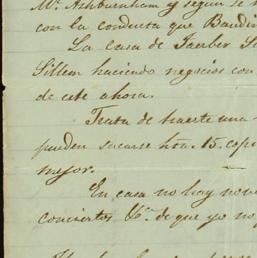 Mr. Ashburnham y segun se
con la conducta que Baudin
La Casa de Faerber
Sillem haciendo negocios con
de este ahora.
Trata de haerte una
pueden sacarse hta. 15. copi
mejor.
En casa no hay nove
conciertos &a. de que yo no p